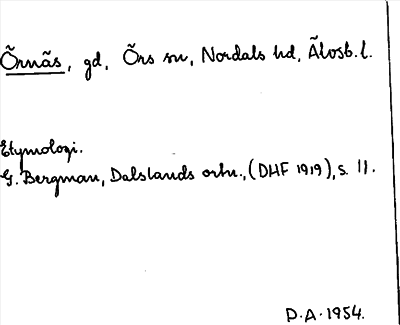 Örnäs, gd, Örs sn, Nordals hd, Älvsb. l.
Etymologi.
G. Bergman, Dalslands ortn., (DHF 1919), s. 11.
D.A. 1954.